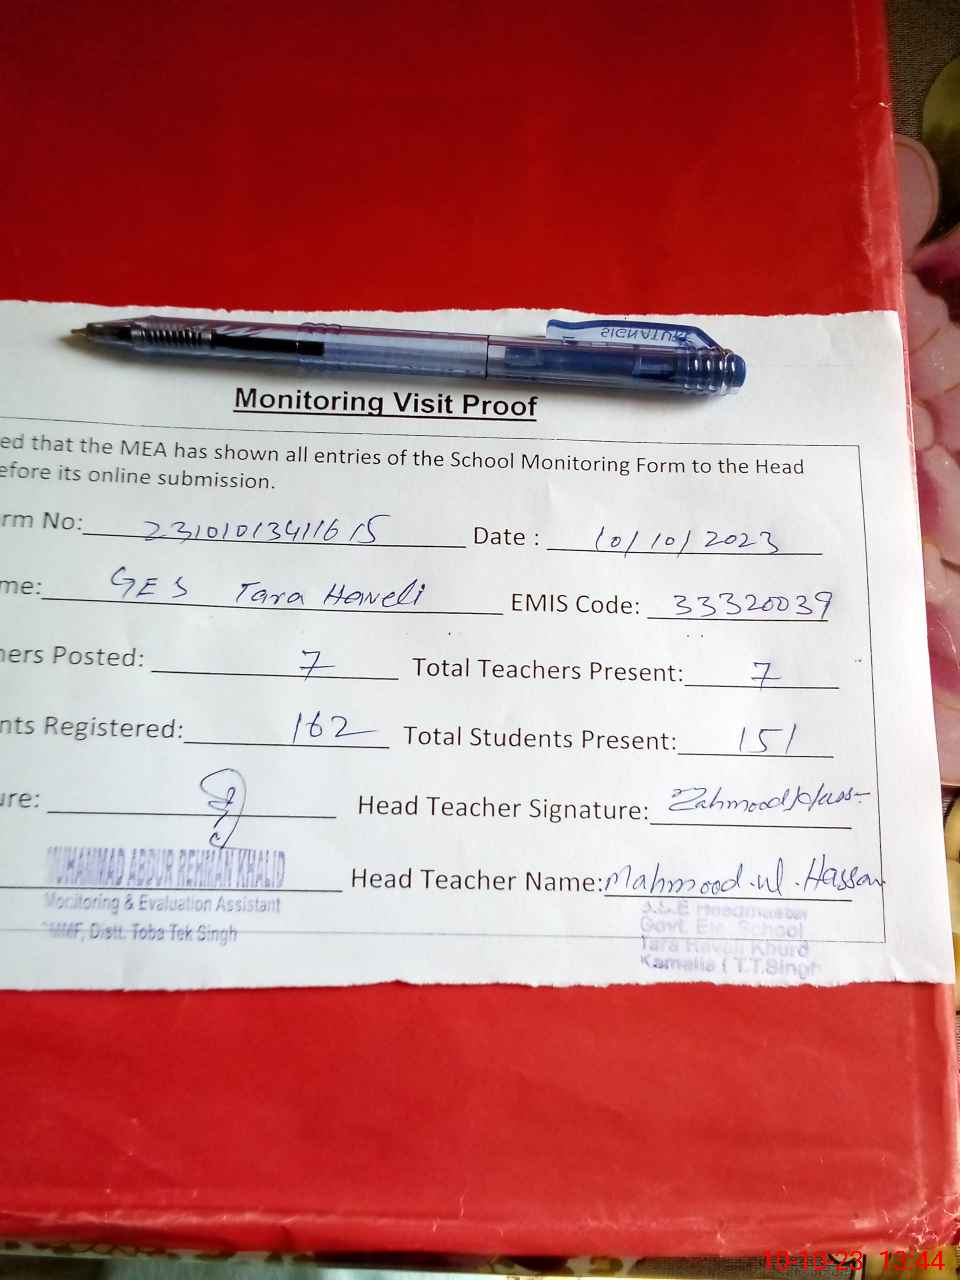 SIGNATURE
Monitoring Visit Proof
ed that the MEA has shown all entries of the School Monitoring Form to the Head
efore its online submission.
rm No: 23101013411615 Date : 10/10/2023
me: GES Tara Haveli EMIS Code: 33320039
ers Posted: 7 Total Teachers Present: 7
nts Registered: 162 Total Students Present: 151
ure: Head Teacher Signature:
MUHAMMAD ABDUR REHMAN KHALID Head Teacher Name: Mahmood.ul.Hassan
Monitoring & Evaluation Assistant
Distt. Toba Tek Singh
Govt. Ele. School
Tara Haveli Khurd
Kamalia (T.T.Singh
10-10-23 13:44